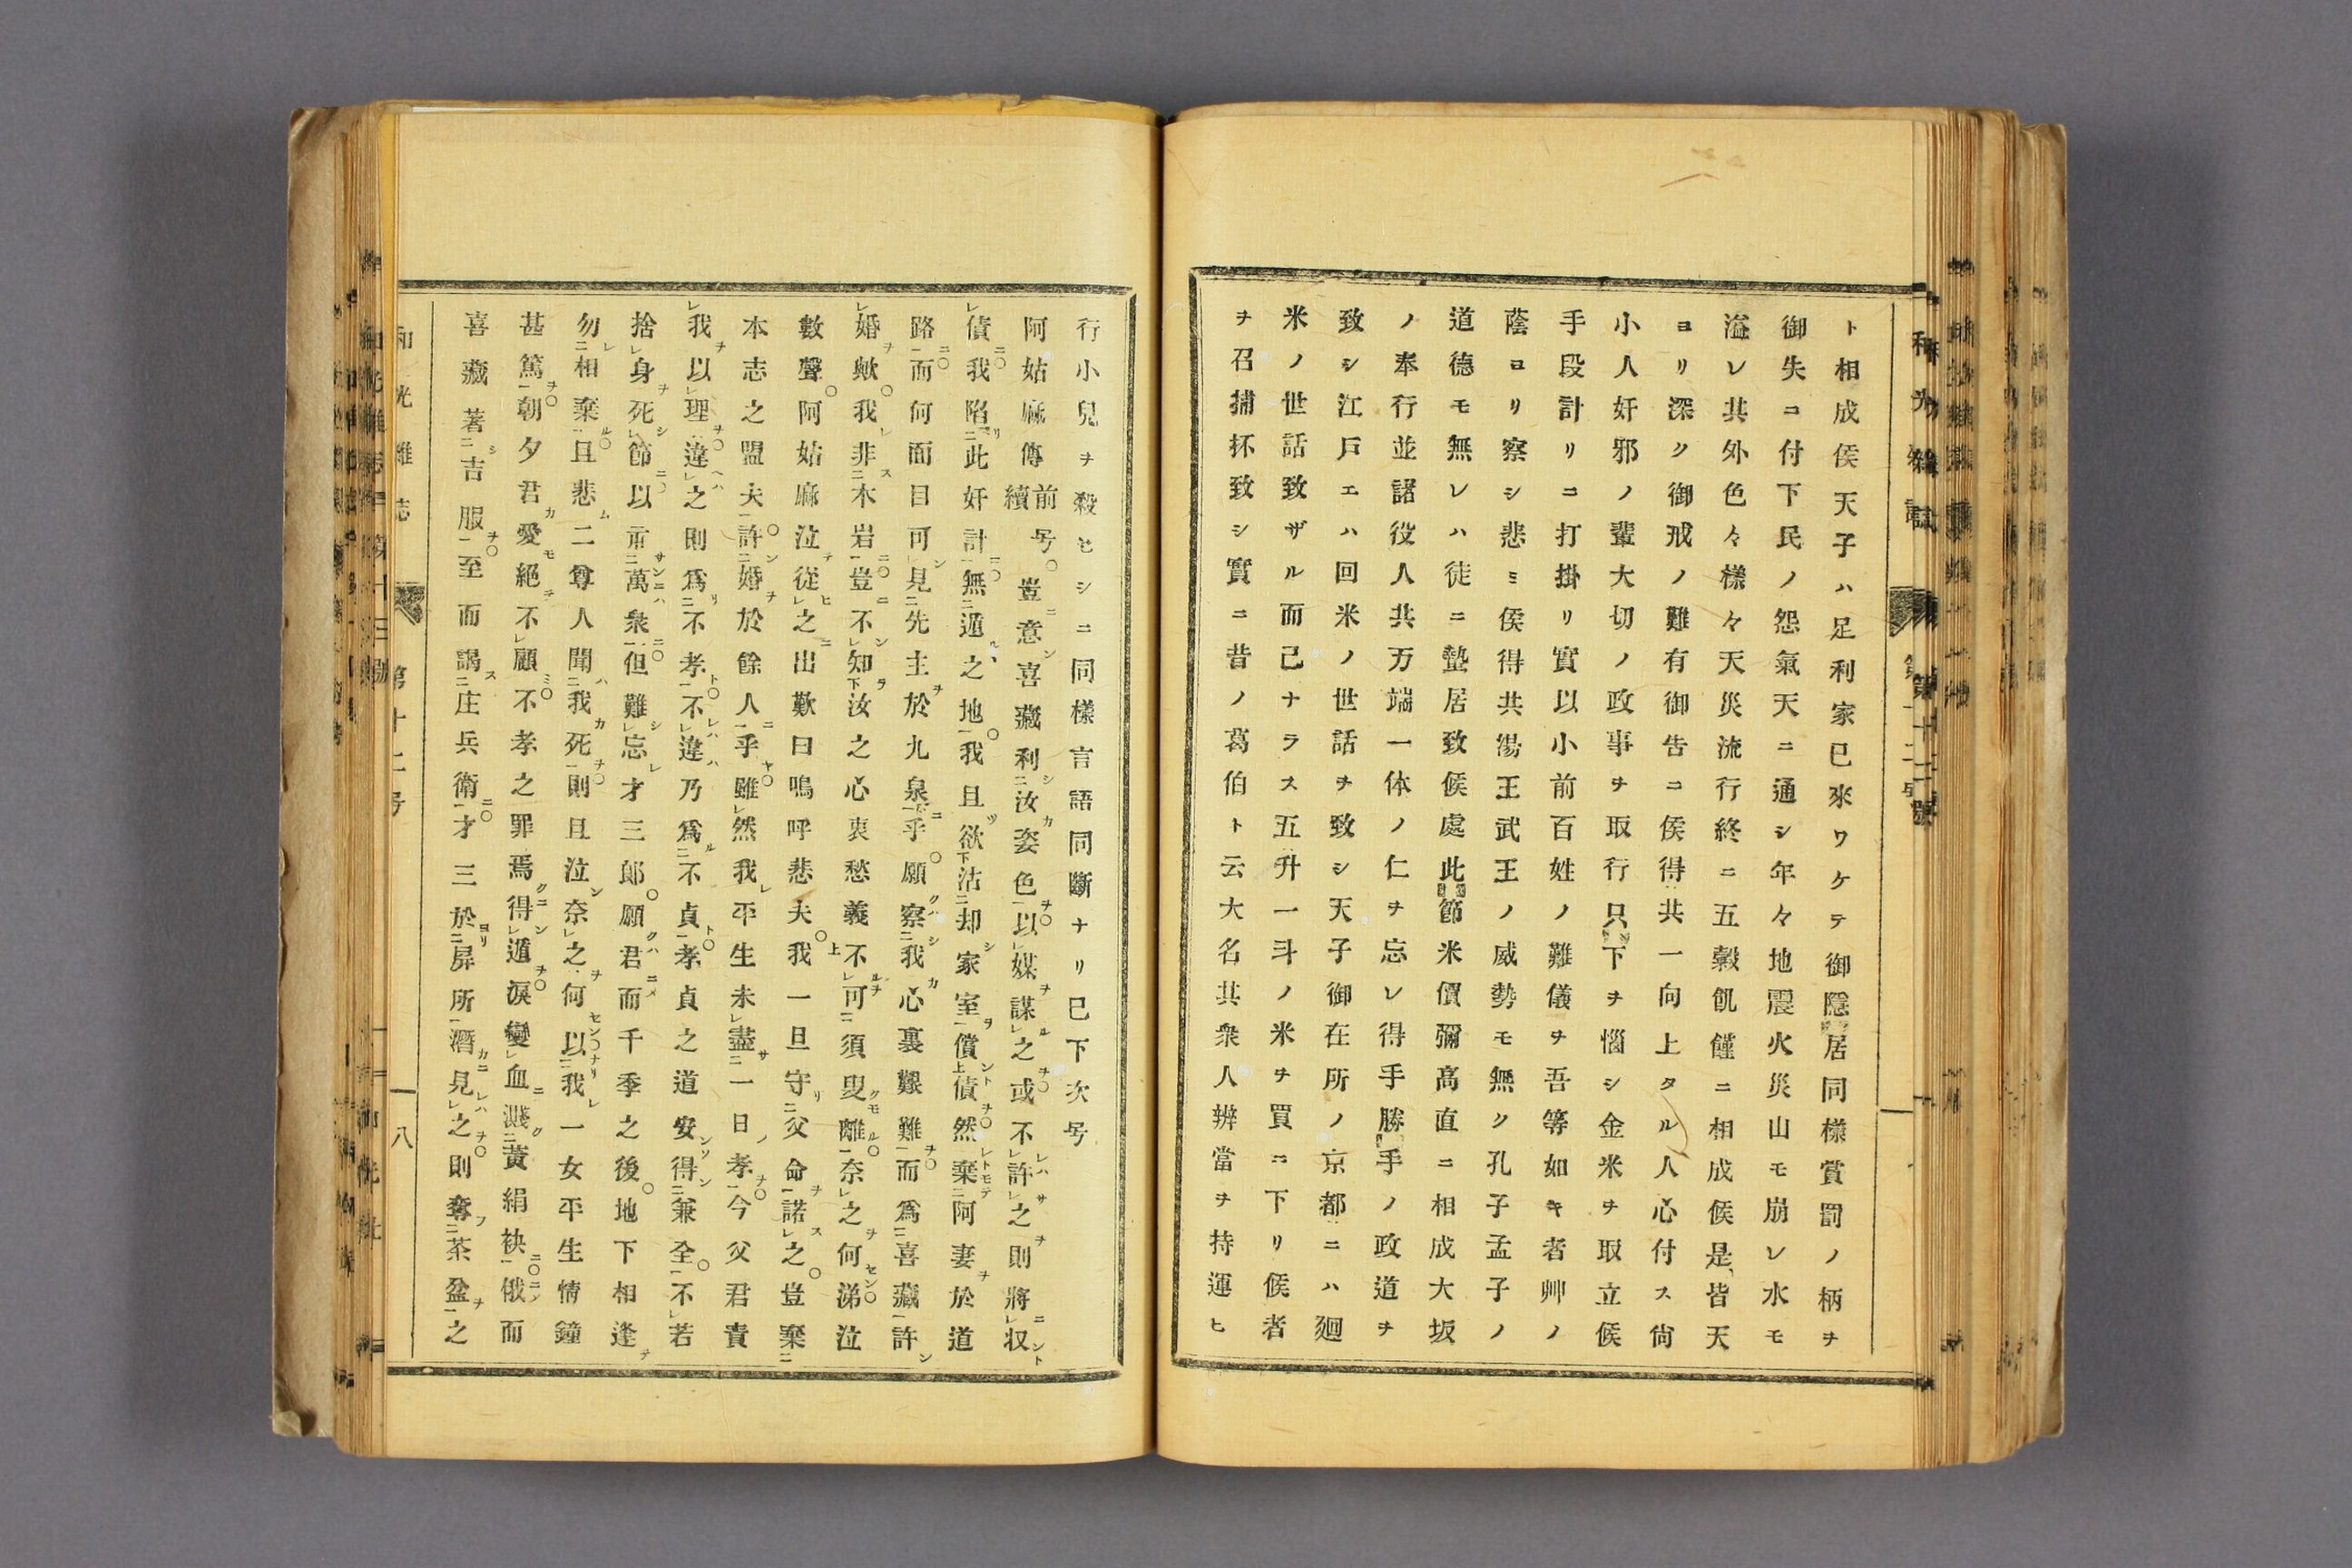 ト相成侯天子ハ足利家已來ワケテ御隱居同樣賞罰ノ柄ヲ
御失コ付下民ノ怨氣天ニ通シ年々地震火災山モ崩レ水モ
溢レ其外色々樣々天災流行終ニ五穀飢饉ニ相成候是皆天
ヨリ深ク御戒ノ難有御吿コ侯得共一向上タル人心付ス尙
小人奸邪ノ輩大切ノ政事ヲ取行只下ヲ惱シ金米ヲ取立候
手段計リコ打掛リ實以小前百姓ノ難儀ヲ吾等如キ者艸ノ
蔭ヨリ察シ悲ミ侯得共湯王武王ノ威勢モ無ク孔子孟子ノ
道德モ無レハ徒ニ蟄居致候處此節米價彌高直ニ相成大坂
ノ奉行並諸役人共万端一体ノ仁ヲ忘レ得手勝手ノ政道ヲ
致シ江戶エハ回米ノ世話ヲ致シ天子御在所ノ京都ニハ廻
米ノ世話致ザル而己ナラス五升一斗ノ米ヲ買ニ下リ候者
ヲ召捕抔致シ實ニ昔ノ葛伯ト云大名其衆人辨當ヲ持運ヒ
和光雜誌 第十二号 八
行小兒ヲ殺セシニ同樣言語同斷ナリ已下次号
阿姑麻傳 前号續 豈意喜藏利汝姿色以媒謀之或不許之則將収
債我陷此奸計無遁之地我且欲沽却家室償債然棄阿妻於道
路而何面目可見先主於九泉乎願察我心裏艱難而爲喜藏許
婚歟我非木岩豈不知汝之心衷愁義不可須臾離奈之何涕泣
數聲阿姑麻泣從之出歎曰嗚呼悲夫我一旦守父命諾之豈棄
本志之盟夫許婚於餘人乎雖然我平生未盡一日孝今父君責
我以理違之則爲不孝不違乃爲不貞孝貞之道安得兼全不若
捨身死節以示萬衆但難忘才三郞願君而千季之後地下相逢
勿相棄且悲二尊人聞我死則且泣奈之何以我一女平生情鐘
甚篤朝夕君愛絕不顧不孝之罪焉得遁淚變血濺黃絹袂俄而
喜藏著吉服至而謁庄兵衛才三於屛所潛見之則奪茶盆之